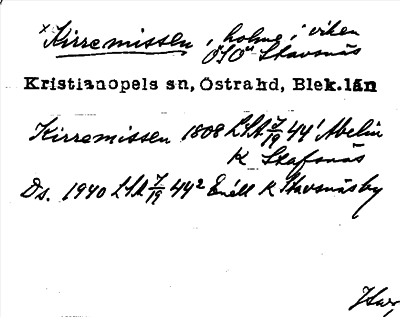 × Kirremissen, holme i viken
ÖSÖ Stavsnäs
Kristianopels sn, Östra hd, Blek.län
Kirremissen 1808 LSA 7/19 44¹ Abelin
K Stafsnäs
Ds. 1940 LSA 7/19 44² Enéll K Stavsnäs by